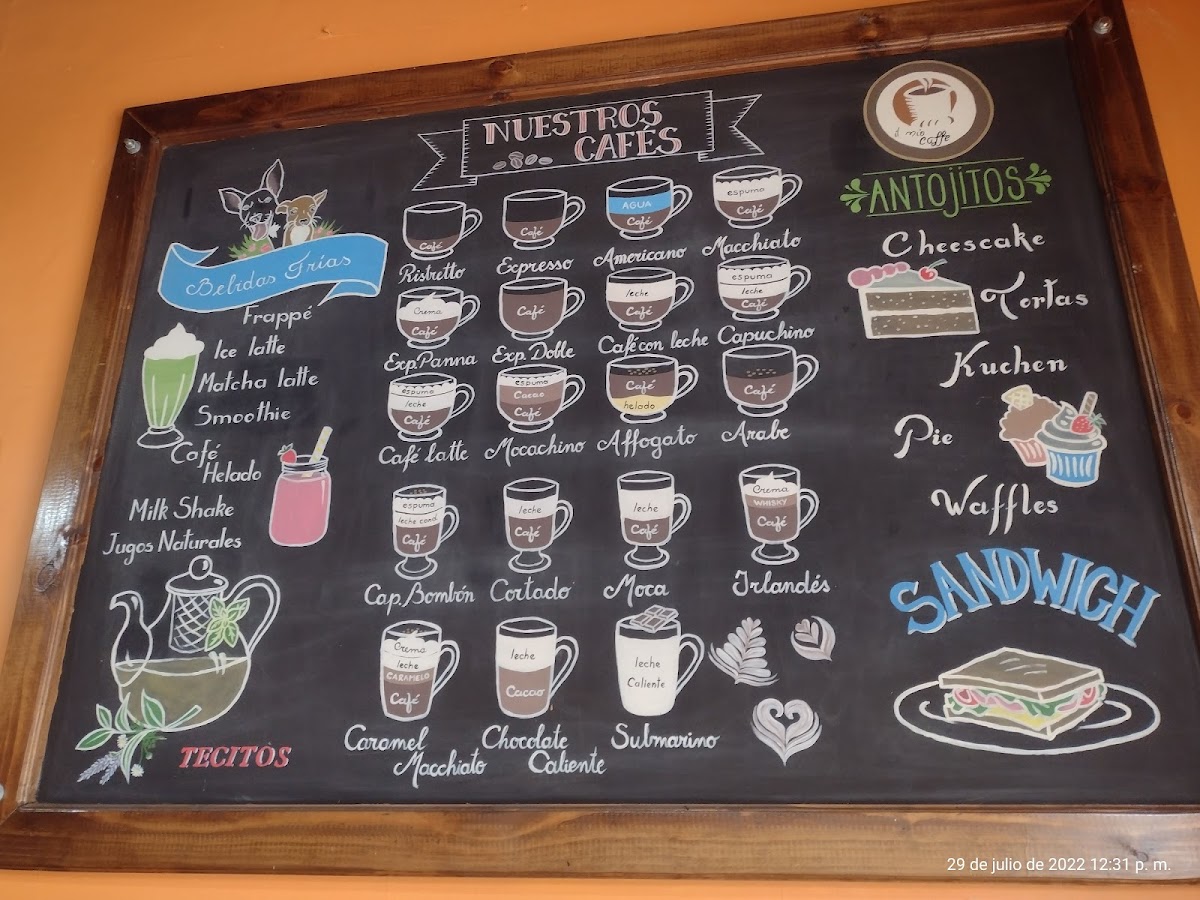 NUESTROS
CAFÉS
il mio
caffe
Bebidas Frías
Frappé
Ice latte
Matcha latte
Smoothie
Café
Helado
Milk Shake
Jugos Naturales
TECITÒS
Café
Café
AGUA
Café
espuma
Café
Ristretto
Expresso
Americano
Macchiato
Crema
Café
Café
leche
Café
espuma
leche
Café
Exp. Panna
Exp. Doble
Café con leche
Capuchino
espuma
leche
Café
espuma
Cacao
Café
Café
helado
Café
Café latte
Mocachino
Affogato
Arabe
espuma
leche cond
Café
leche
Café
leche
Café
Crema
WHISKY
Café
Cap. Bombón
Cortado
Moca
Irlandés
Crema
leche
CARAMELO
Café
leche
Cacao
leche
Caliente
Caramel
Macchiato
Chocolate
Caliente
Submarino
ANTOJITOS
Cheescake
Tortas
Kuchen
Pie
Waffles
SANDWICH
29 de julio de 2022 12:31 p. m.